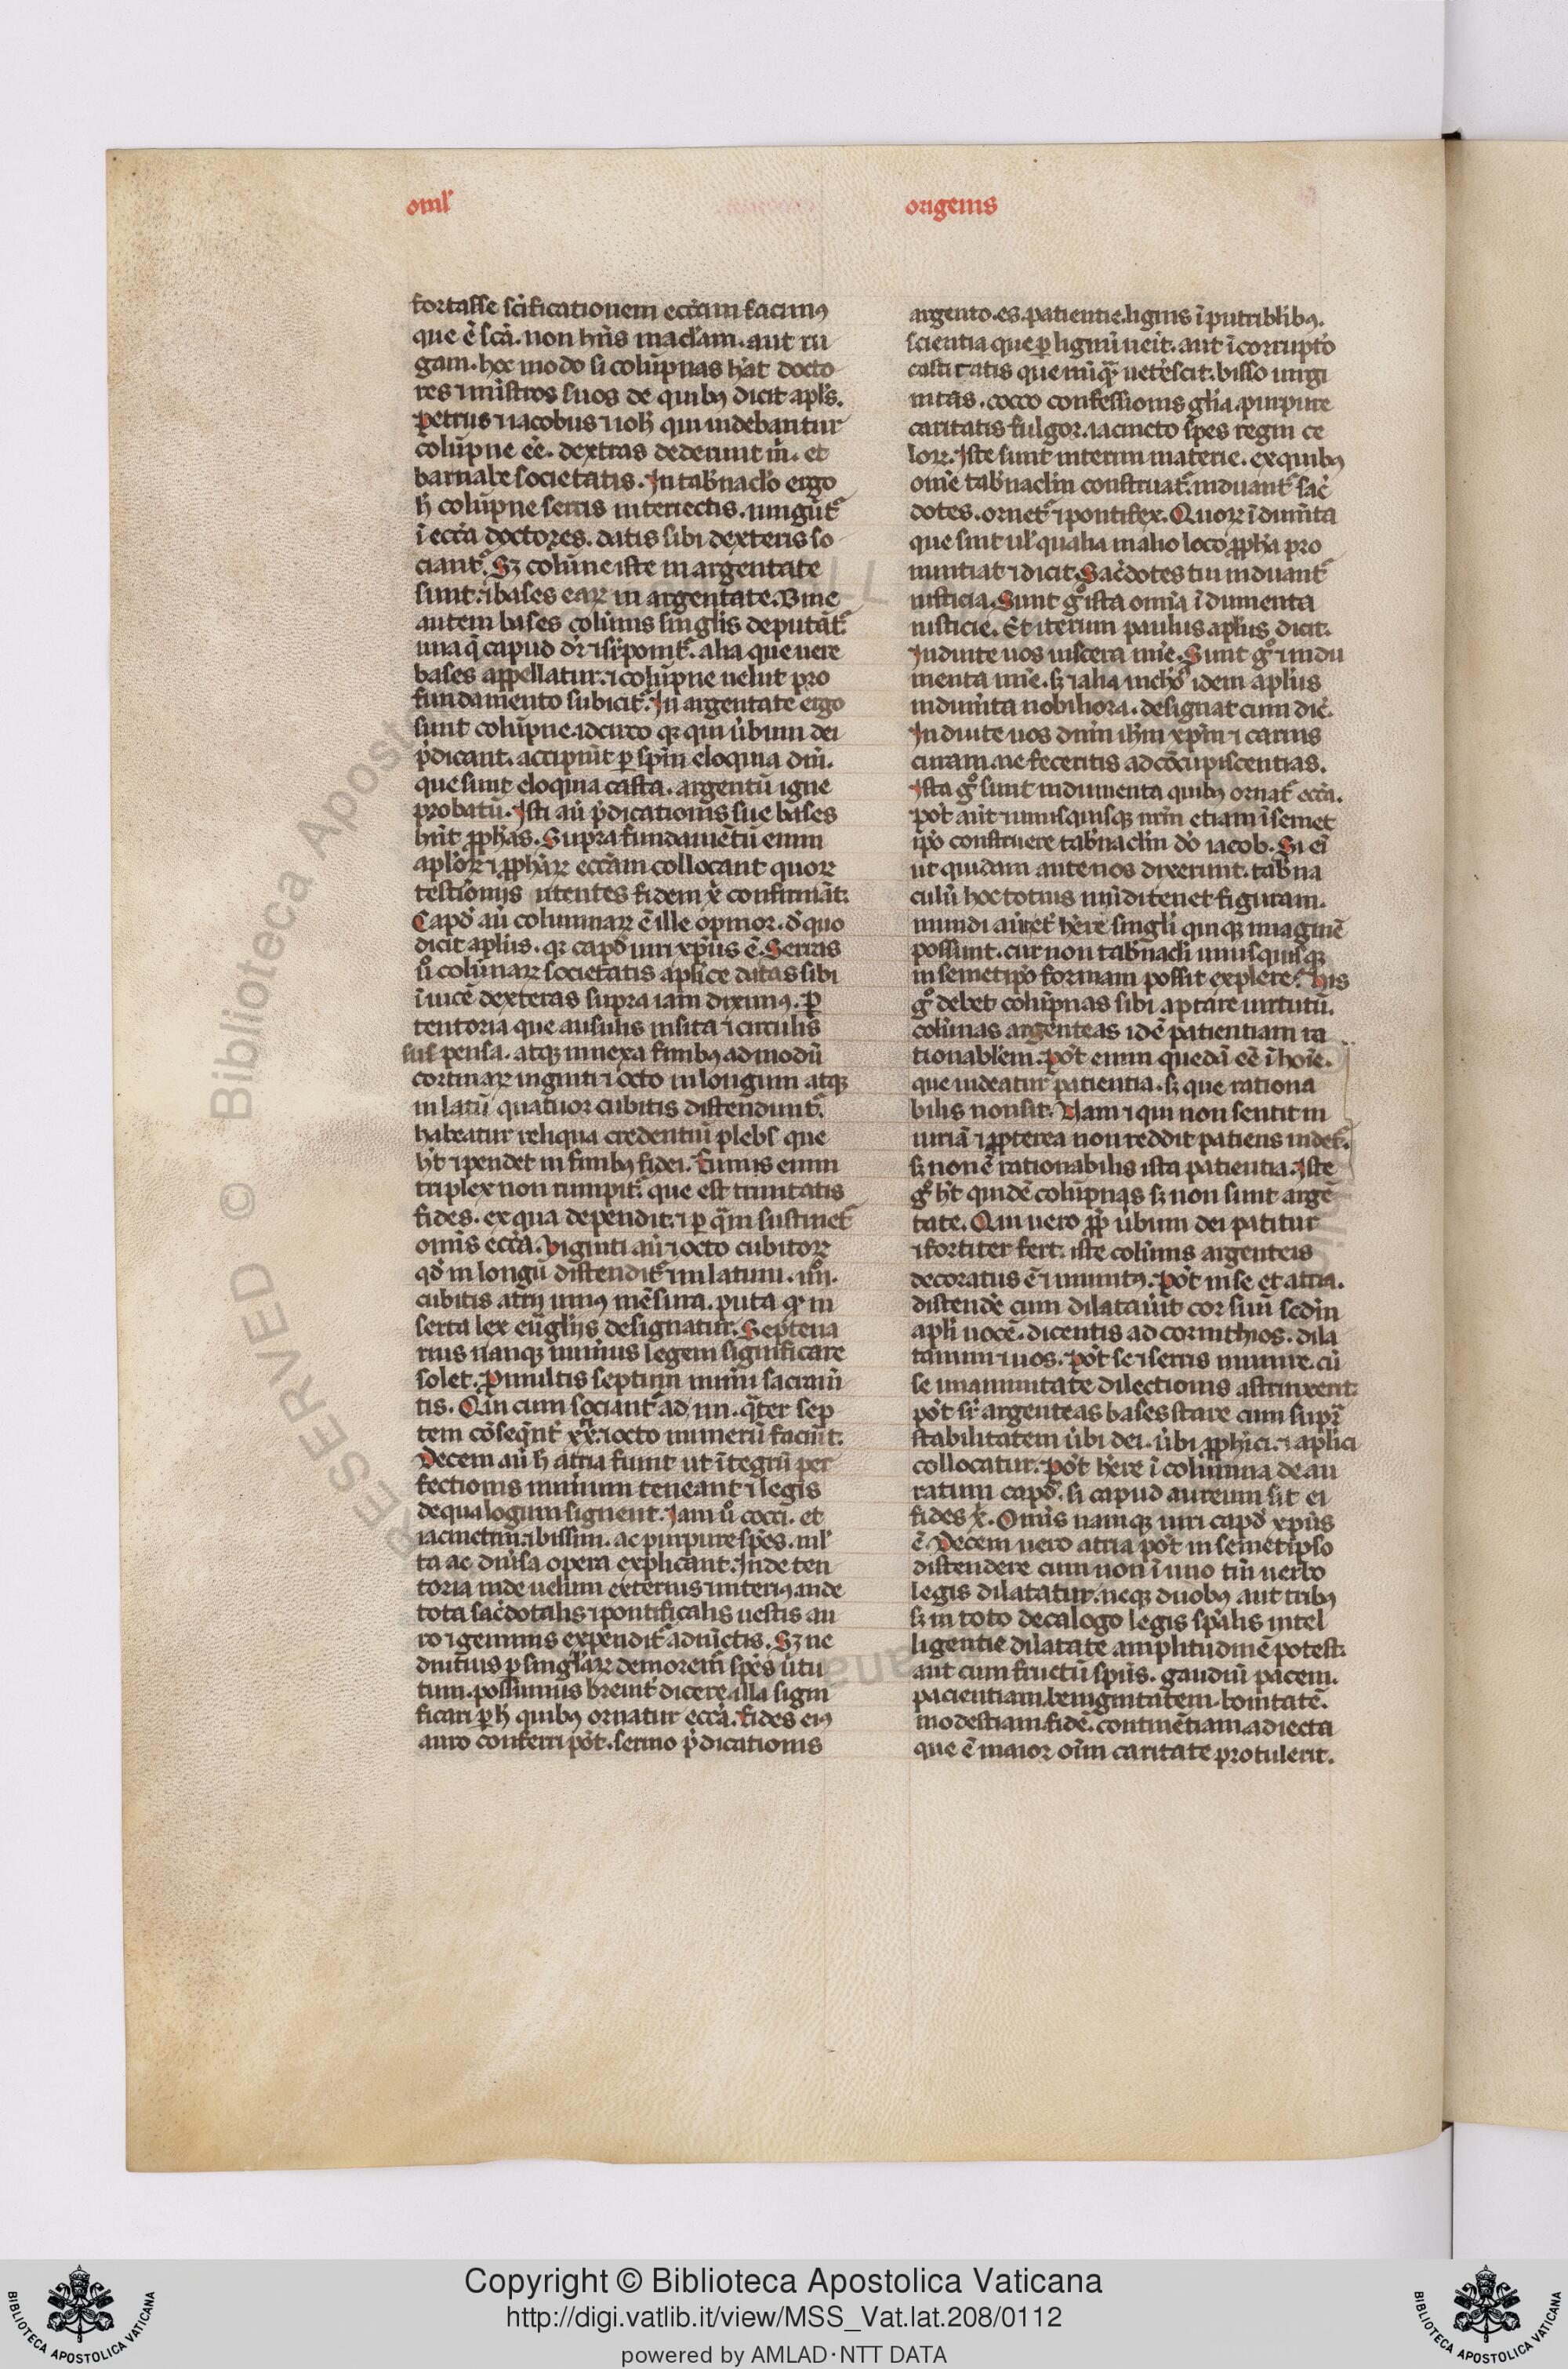 oml'
origenis
fortasse scificationem eccam facimꝯ
que ē scā. non hn̄s maclam. aut ru
gam. hoc modo si colūpnas hat docto
res ⁊ mistros suos de quibꝯ dicit apls̄.
petrus ⁊ iacobus ⁊ ioh̄ qui uidebantur
colūpne eē. dextras dederunt m̄. et
barnabe societatis. In tab'naclo ergo
h̄ colūpne serris interiectis. iungūt͛
ī ecc̄a doctores. datis sibi dexteris so
ciant͛. Sꝫ colūne iste in argentate
sunt. ⁊ bases eaꝝ in argentate. Bine
autem bases colūnis singlis deputāt͛.
una q̄ capud dr̄ ⁊ sr̄ponit͛. alia que uere
bases appellatur. ⁊ colūpne uelut pro
fundamento subicit͛. In argentate ergo
sunt colūpne. idcirco qꝛ qui ūbum dei
p̄dicant. accipiūt ꝑ sp̄m eloquia dn̄i.
que sunt eloquia casta. argentū igne
probatū. Isti aū p̄dicationis sue bases
hn̄t ꝓph̄as. Supra fundamētū enim
aploꝝ ⁊ ꝓph̄aꝝ eccam collocant quoꝝ
testioniis utentes fidem x̄ confirmāt.
Capd̄ aū columnaꝝ ē ille opinor. d̄ quo
dicit aplus. qꝛ capd̄ uiri xp̄us ē. Serras
u͛o colūnaꝝ societatis aplice datas sibi
īuicē dexteras supra iam diximꝯ. ꝑ
tentoria que ansulis insita ⁊ circulis
suspensa. atqꝫ innexa funibꝯ ad modū
cortinaꝝ uiginti ⁊ octo in longum atqꝫ
in latū quatuor cubitis distendunt͛.
habeatur reliqua credentiū plebs que
h̄t ⁊ pendet in funibꝯ fidei. Funis enim
triplex non rumpit͛. que est trinitatis
fides. ex qua dependit. ⁊ ꝑ q̄m sustinet͛
omis ecc̄a. Viginti aū ⁊ octo cubitoꝝ
qd̄ in longū distendit͛ ⁊ in latum. iiii.
cubitis atrij unꝯ mēsura. puta qꝛ in
serta lex eūglijs designatur. Septena
rius nanqꝫ num̄us legem significare
solet. ꝑ multis septim num̄i sacram̄
tis. Qui cum sociant͛ ad iiii. q̄ter sep
tem cōseqn̄t͛ xx. ⁊ octo numerū faciūt.
Decem aū h̄ atria fiunt ut ītegrū per
fectionis num̄um teneant ⁊ legis
dequalogum signent. Iam u͛o cocci. et
iacinctini. ⁊ bissini. ac purpure spēs. mul
ta ac diu'sa opera explicant. Inde ten
toria inde uelum exterius ⁊ interiꝯ inde
tota sac̄dotalis ⁊ pontificalis uestis au
ro ⁊ gemmis expendit͛ adiūctis. Sꝫ ne
diutius ꝑ singlaꝝ demorem̄ spēs uirtu
tum. possumus breuit͛ dicere. illa signi
ficari ꝑ h̄ quibꝯ ornatur ecc̄a. Fides eiꝯ
auro conferri pōt. sermo p̄dicationis
argento. es. patientie. lignis īputriblibꝯ.
scientia que ꝑ lignū ueit. aut īcorrupto
castitatis que nūqᷓ uetescit. bisso uirgi
nitas. cocco confessionis gl̄ia. purpure
caritatis fulgor. iacincto spes regni ce
loꝝ. Iste sunt interim materie. ex quibꝯ
om̄e tab'naclm construat͛. induant͛ sac̄
dotes. ornet͛ ⁊ pontifex. Quoꝝ īdum̄ta
que sint ul' qualia in alio loco ꝓph̄a pro
nuntiat ⁊ dicit. Sac̄dotes tui induant͛
iusticia. Sunt g͛o ista om̄ia īdumenta
iusticie. Et iterum paulus aplus dicit.
Induite uos uiscera mīe. Sunt g͛o ⁊ indu
menta mīe. sꝫ ⁊ alia nichō idem aplus
indum̄ta nobiliora. designat cum dic̄.
Induite uos dnm̄ ih̄m xp̄m ⁊ carnis
curam. ne feceritis ad cōcupiscentias.
Ista g͛o sunt indumenta quibꝯ ornat͛ ecc̄a.
pōt aūt unusquisqꝫ nr̄m etiam ī semet
ipō construere tab'naclm dō iacob. Si ei
ut quidam ante nos dixerunt. tab'na
culū hoc totius mūdi tenet figuram.
mundi aūtet͛ h̄ere singli quiqꝫ imaginē
possunt. cur non tab'nacli unusquisqꝫ
in semetip̄o formam possit explere. His
g͛o debet colūpnas sibi aptare uirtutū.
colūnas argenteas idē patientiam ra
tionablem. pōt enim quedā eē ī hoīe.
que uideatur patientia. sꝫ que rationa
bilis non sit. Nam ⁊ qui non sentit in
iuriā ⁊ ꝓpterea non reddit patiens uidet͛.
sꝫ non ē rationabilis ista patientia. Iste
g͛o h̄t quidē colūpnas sꝫ non sunt argē
tate. Qui uero ꝓp̄ ūbum dei patitur
⁊ fortiter fert. iste colūnis argenteis
decoratus ē ⁊ munitꝯ. pōt in se et atria.
distende͛ cum dilatauit cor suū sedm̄
apli uocē. dicentis ad corinthios. dila
tamini ⁊ uos. pōt se ⁊ serris munire. cū
se unanimitate dilectionis astrinxerit.
pōt sr̄ argenteas bases stare cum supr̄
stabilitatem ūbi dei. ūbi ꝓphici. ⁊ aplici
collocatur. pōt h̄ere ī columna deau
ratum capd̄. si capud aureum sit ei
fides x̄. Omis namqꝫ uiri capd̄ xp̄us
ē. Decem uero atria pōt in semetipso
distendere cum non ī uno tm̄ uerbo
legis dilatatur. neqꝫ duobꝯ aut tribꝯ
sꝫ in toto decalogo legis sp̄alis intel
ligentie dilatate amplitudinē potest.
aut cum fructū sp̄us. gaudiū pacem.
pacientiam. benignitatem. bonitatē.
modestiam. fidē. continētiam. adiecta
que ē maior oim̄ caritate protulerit.
Copyright © Biblioteca Apostolica Vaticana
http://digi.vatlib.it/view/MSS_Vat.lat.208/0112
powered by AMLAD·NTT DATA